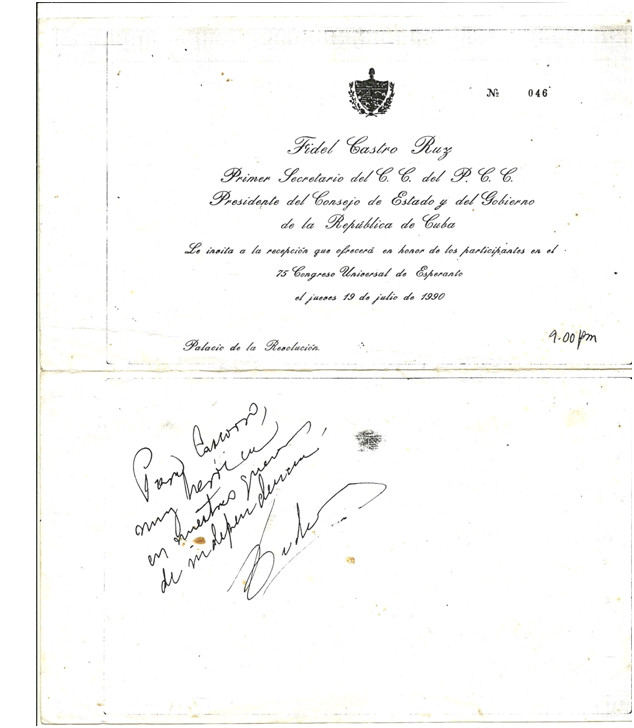 Nº 046
Fidel Castro Ruz
Primer Secretario del C. C. del P. C. C.
Presidente del Consejo de Estado y del Gobierno
de la República de Cuba
Le invita a la recepción que ofrecerá en honor de los participantes en el
75 Congreso Universal de Esperanto
el jueves 19 de julio de 1990
9.00 pm
Palacio de la Revolución
Para
muy
en nuestras guerras
de independencia